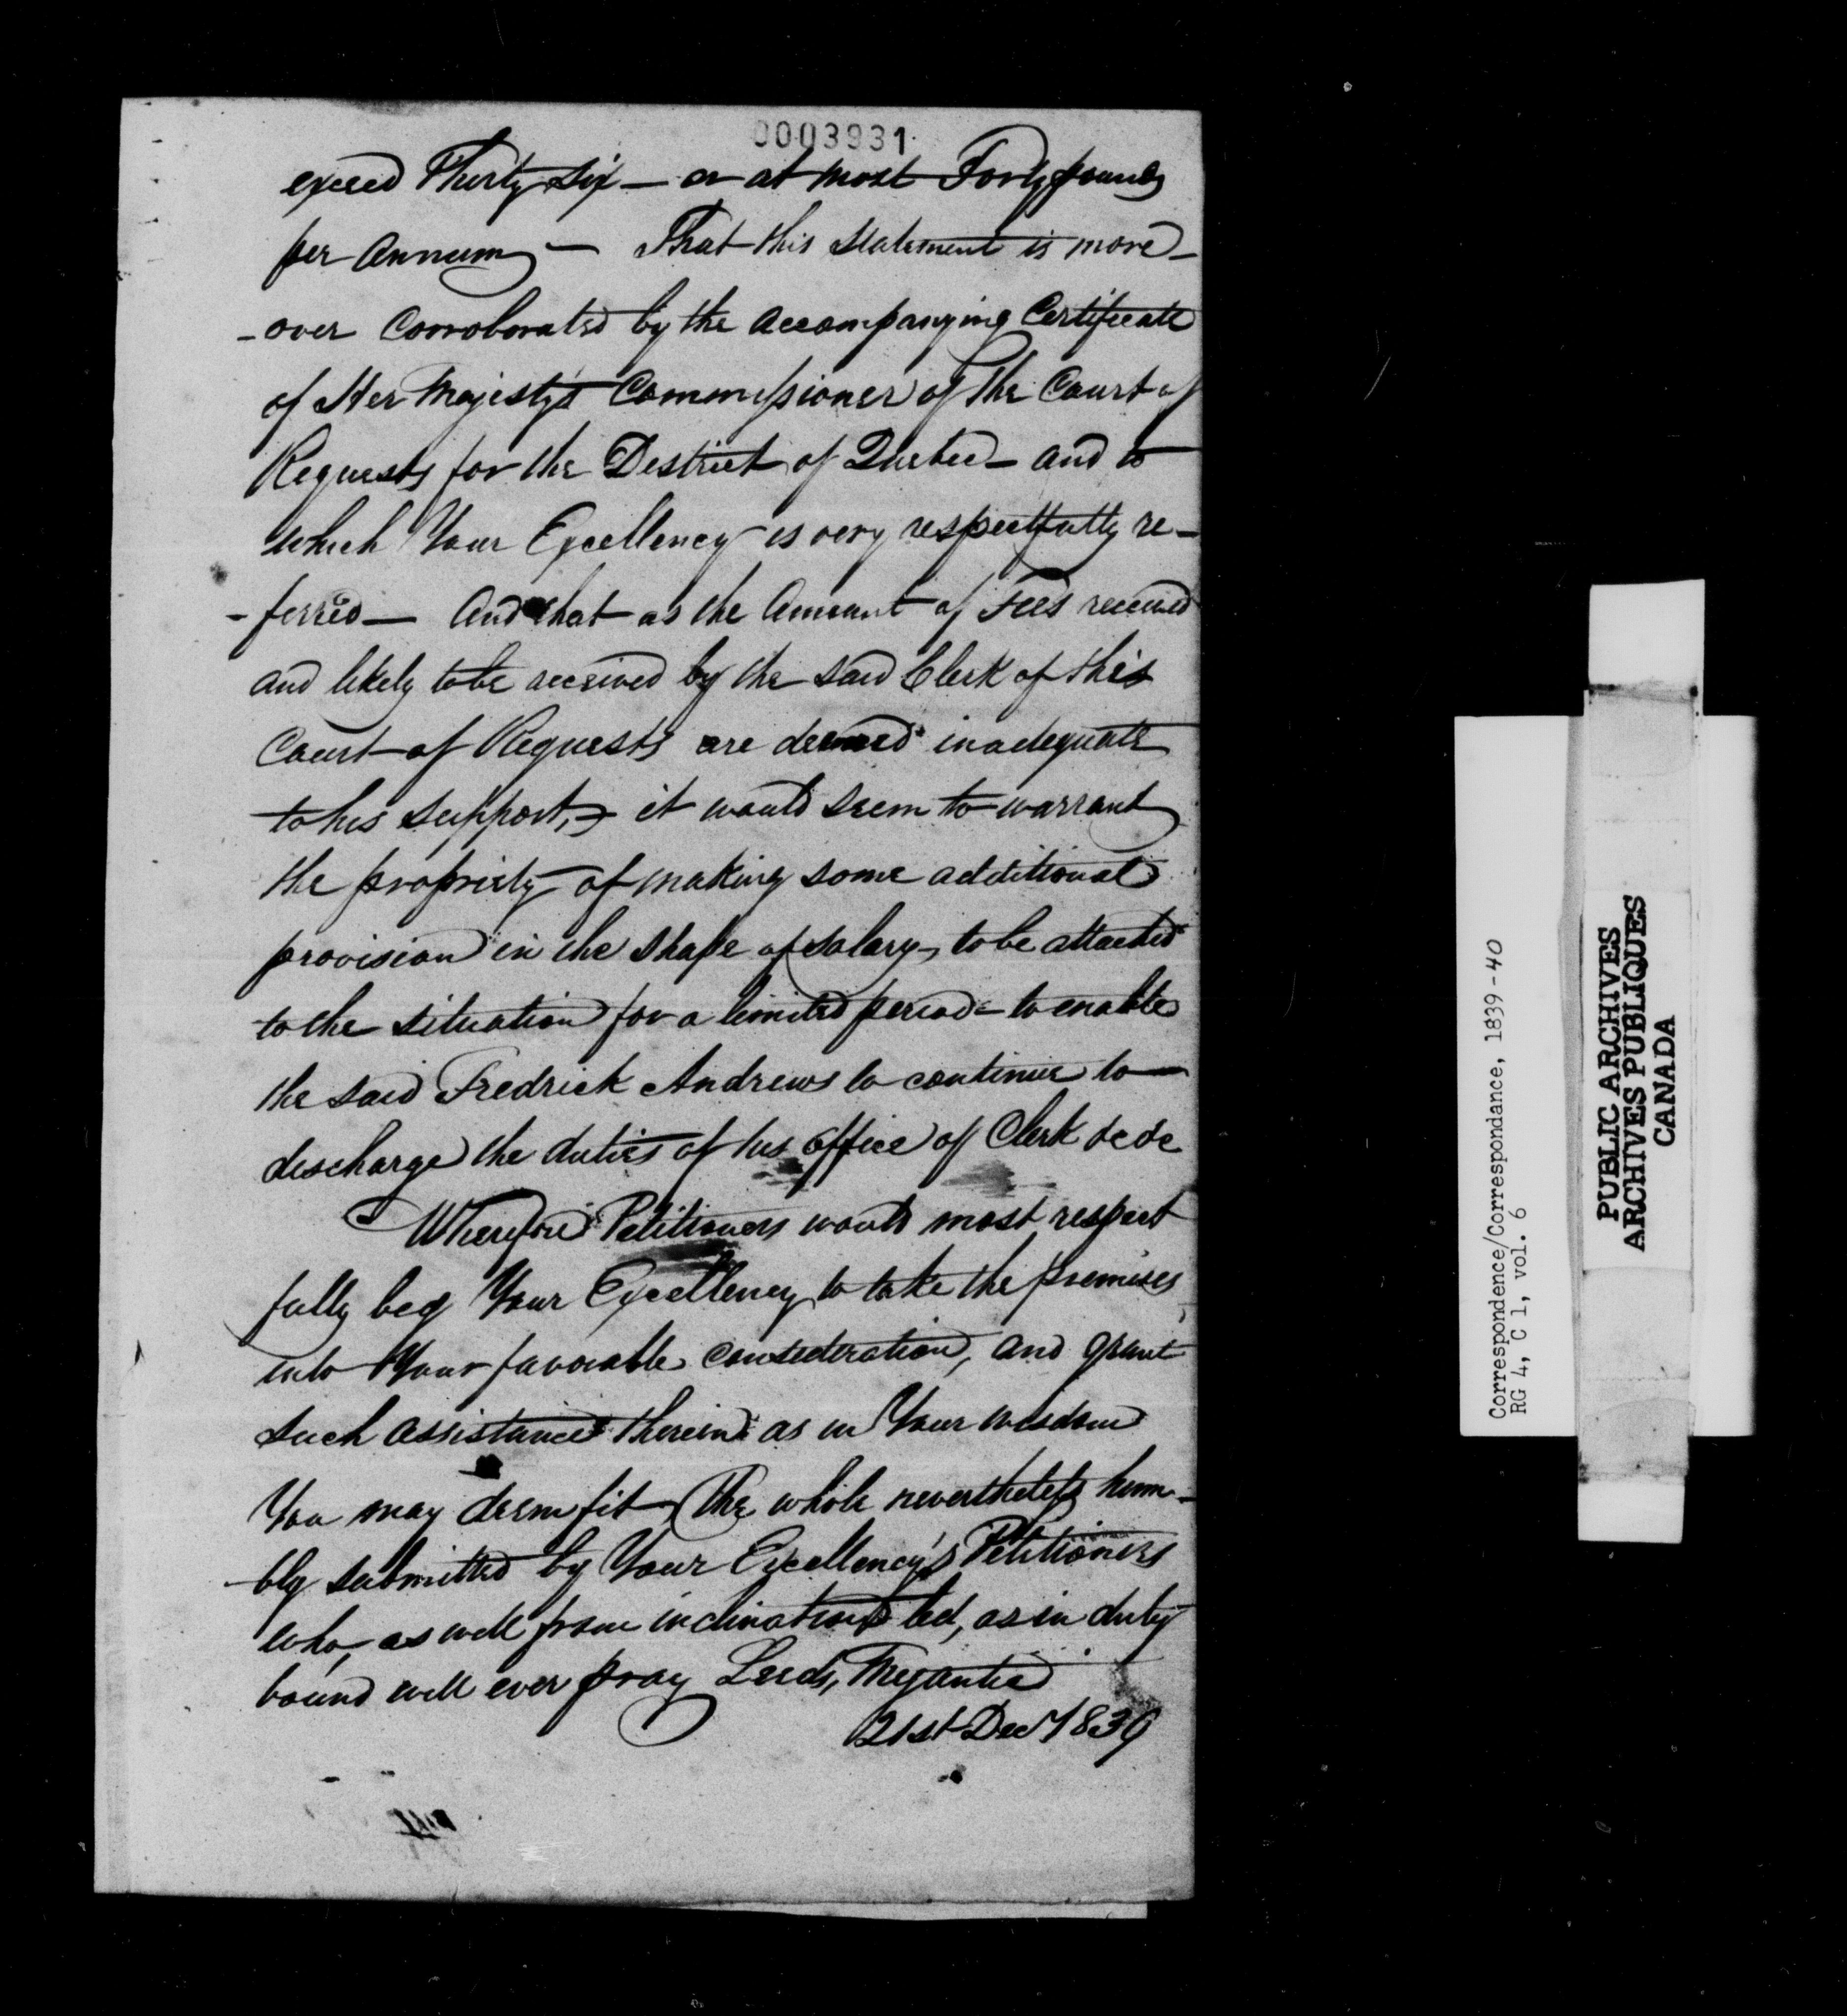 0003931
exceed Thirty six — or at most Forty pounds
per Annum — That this Statement is more-
-over Corroborated by the accompanying Certificate
of Her Majesty's Commissioner of The Court of
Requests for the District of Quebec — and to
which Your Excellency is very respectfully re-
-ferred — And that as the Amount of Fees received
and likely to be received by the said Clerk of this
Court of Requests are deemed inadequate
to his support, it would seem to warrant
the propriety of making some additional
provision in the shape of salary, to be attached
to the situation for a limited period = to enable
the said Fredrick Andrews to continue to —
discharge the duties of his office of Clerk &c &c
Wherefore Petitioners would most respect
fully beg Your Excellency to take the premises
into Your favorable consideration, and grant
such assistance therein as in Your wisdom
You may deem fit, The whole nevertheless hum-
-bly submitted by Your Excellency's Petitioners
who, as well from inclination led, as in duty
bound will ever pray Leeds, Megantic
21st Decr 1839
Correspondence/Correspondance, 1839-40
RG 4, C 1, vol. 6
PUBLIC ARCHIVES
ARCHIVES PUBLIQUES
CANADA